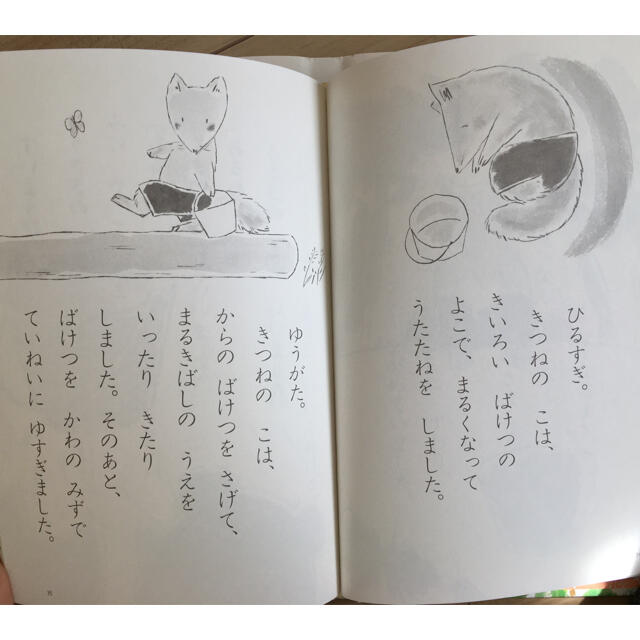 ひるすぎ。
きつねの こは、
きいろい ばけつの
よこで、まるくなって
うたたねを しました。
ゆうがた。
きつねの こは、
からの ばけつを さげて、
まるきばしの うえを
いったり きたり
しました。そのあと、
ばけつを かわの みずで
ていねいに ゆすぎました。